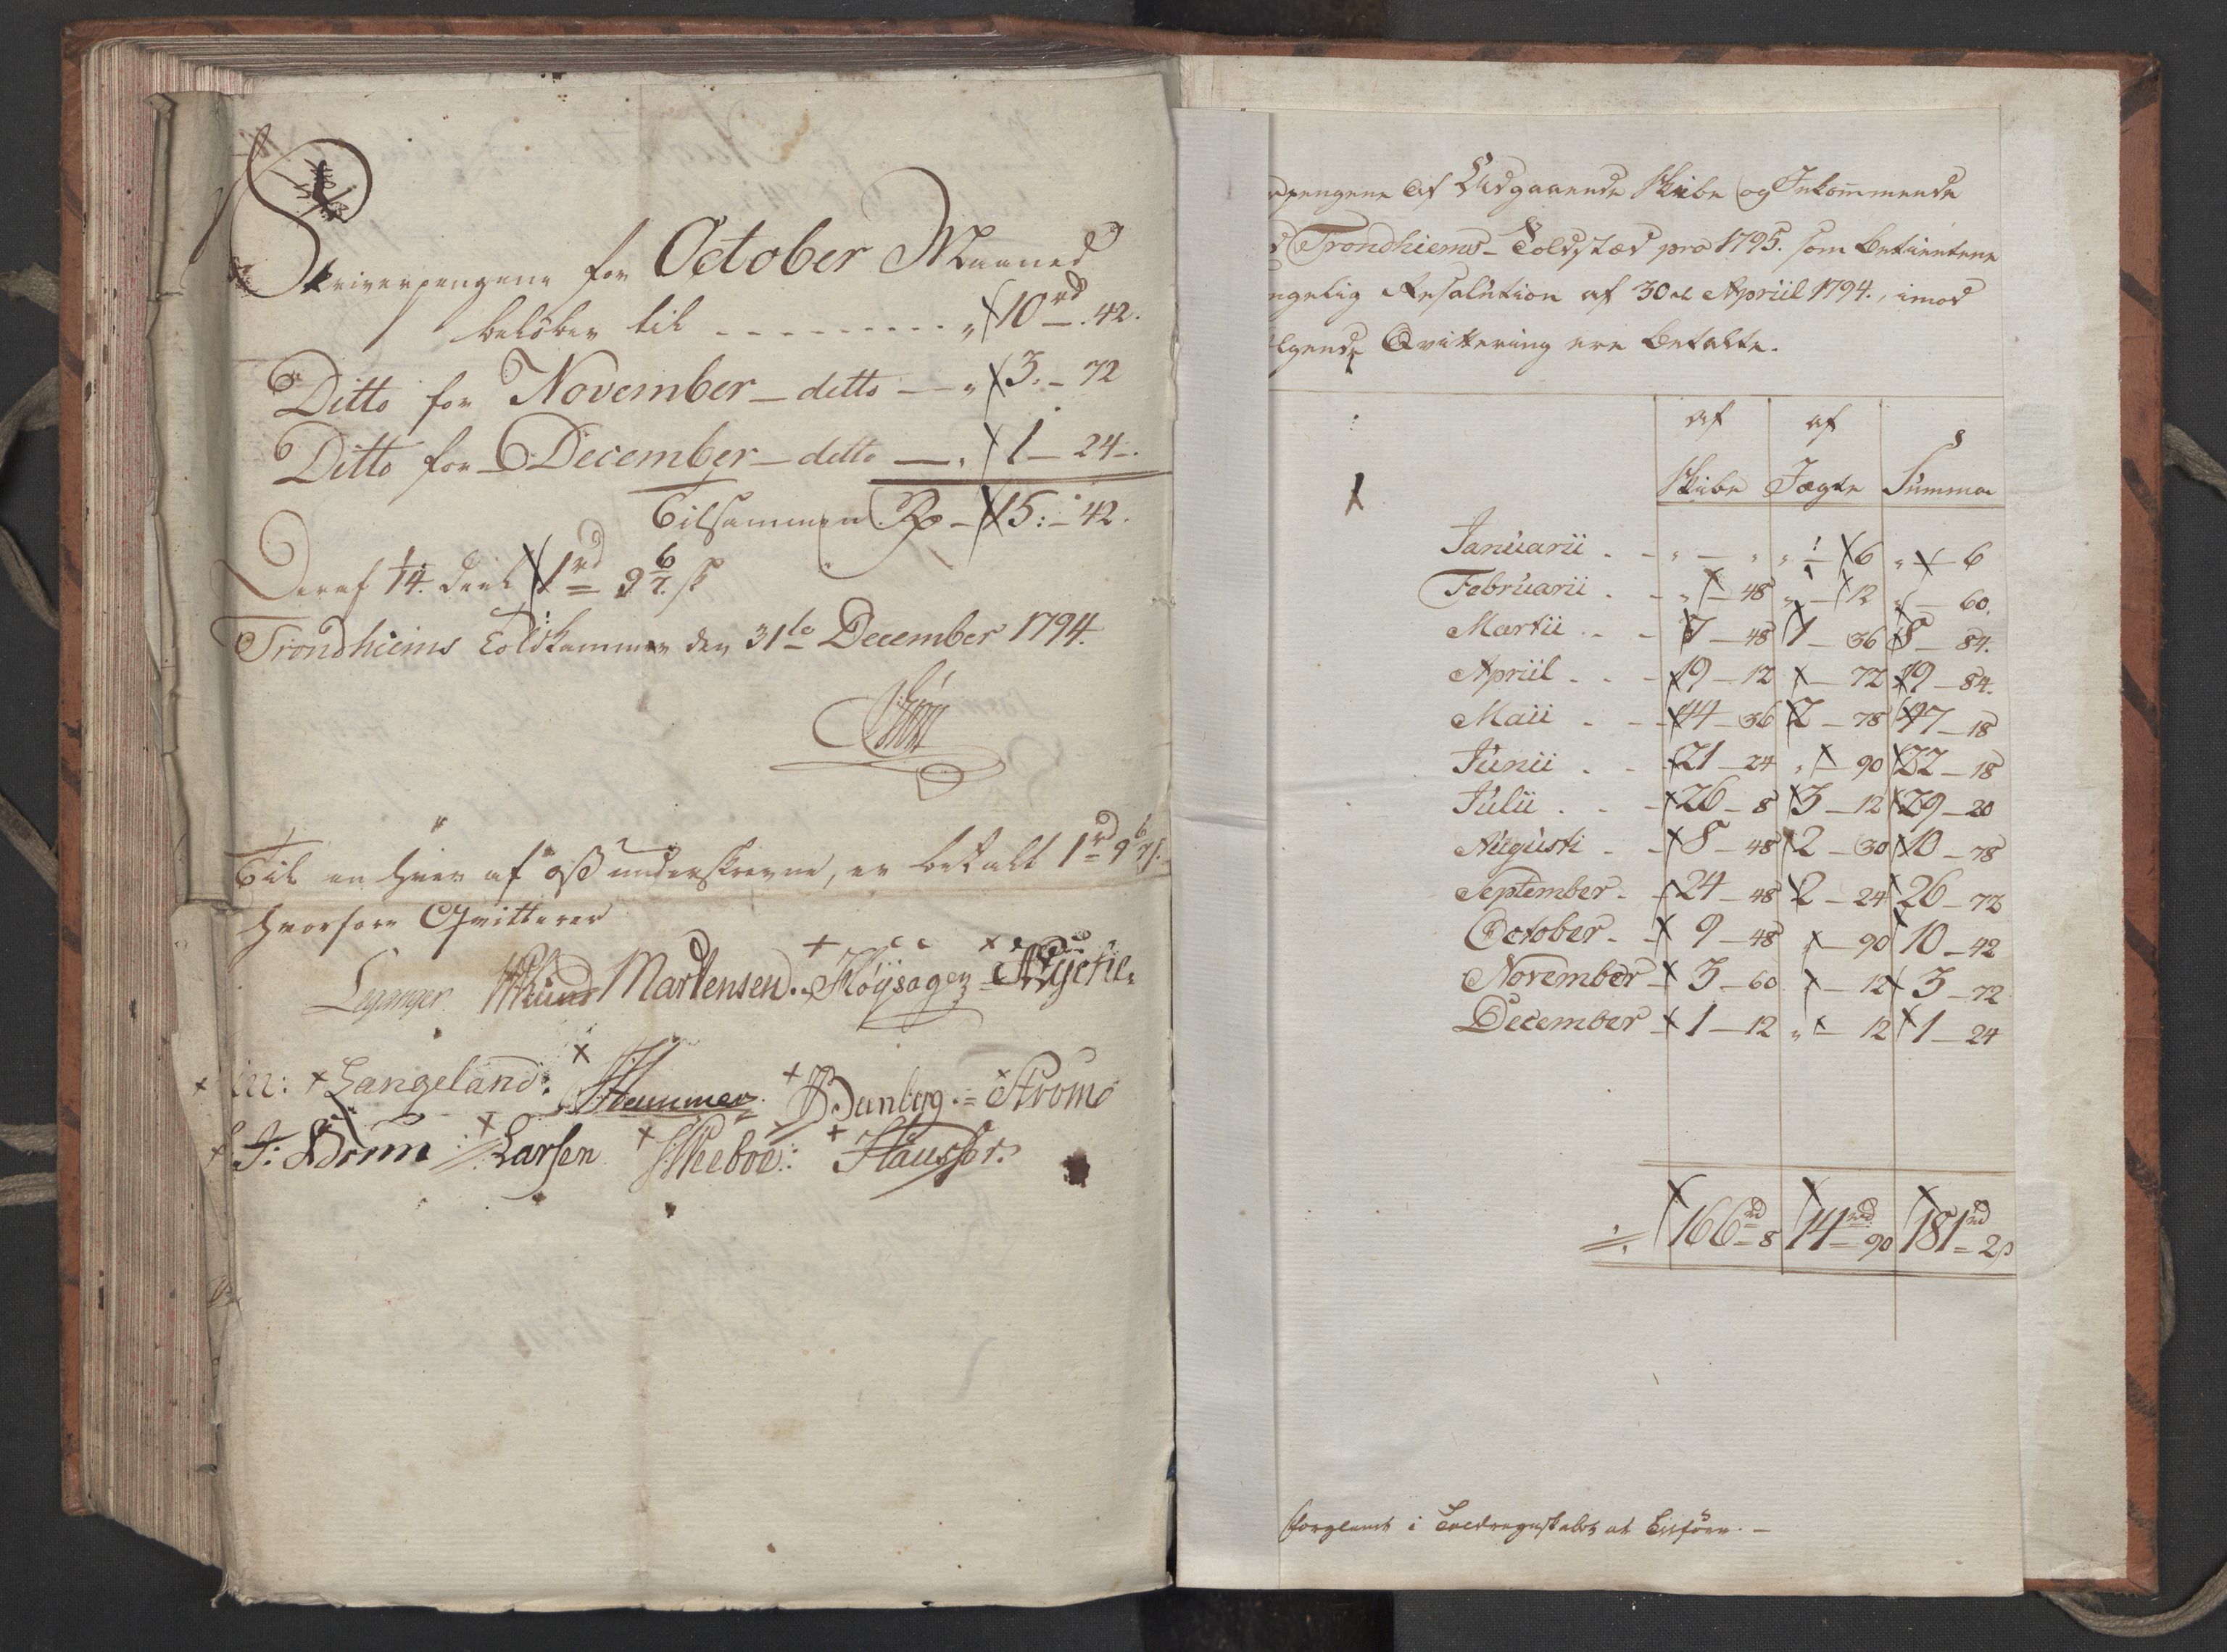 Skriverpengene for October Maaned
beløber til - - - - - - - - - „ 10 rd. 42.
Ditto for November – ditto — „ 3. – 72
Ditto for December – ditto — „ 1 – 24 –.
Tilsammen Rd – 15: – 42.
Deraf 1/14. Deel 1 rd 9 6/7 s
Trondhiems Toldkammer den 31te December 1794.
Til en hver af oß underskrevne, er betalt 1 rd 9 6/7 s.
hvorfore Qvitterer
Leganger. Martensen. Høysagen
Langeland: Hammer. Strøm
Larsen Skeboe: Hausser.
rpengene af Udgaaende Skibe og Inkom̄ende
d Trondhiems Toldsted pro 1795. som Betienterne
ngelig Resolution af 30 te Apriil 1794., imod
lgende Qvittering ere betalte.
af af
Skibe Jægte Summa
Januarii . - „ — „ „ — 6 „ — 6
Februarii . - „ — 48 „ — 12 „ — 60.
Martii . . - 7 — 48 1 — 36 8 — 84.
Apriil . . - 19 — 12 — 72 19 — 84.
Maii . - - 44 — 36 2 — 78 47 — 18
Junii . - - 21 — 24 „ — 90 22 — 18
Julii . . - 26 — 8 3 — 12 29 — 20
Augusti - - 8 — 48 2 — 30 10 — 78
September - - 24 — 48 2 — 24 26 — 72
October - - 9 — 48 „ — 90 10 — 42
November - 3 — 60 — 12 3 — 72
December - 1 — 12 „ — 12 1 — 24
166 rd – 8 14 rd – 90 181 rd – 2
forglemt i Toldregnskabet at tilføre. —